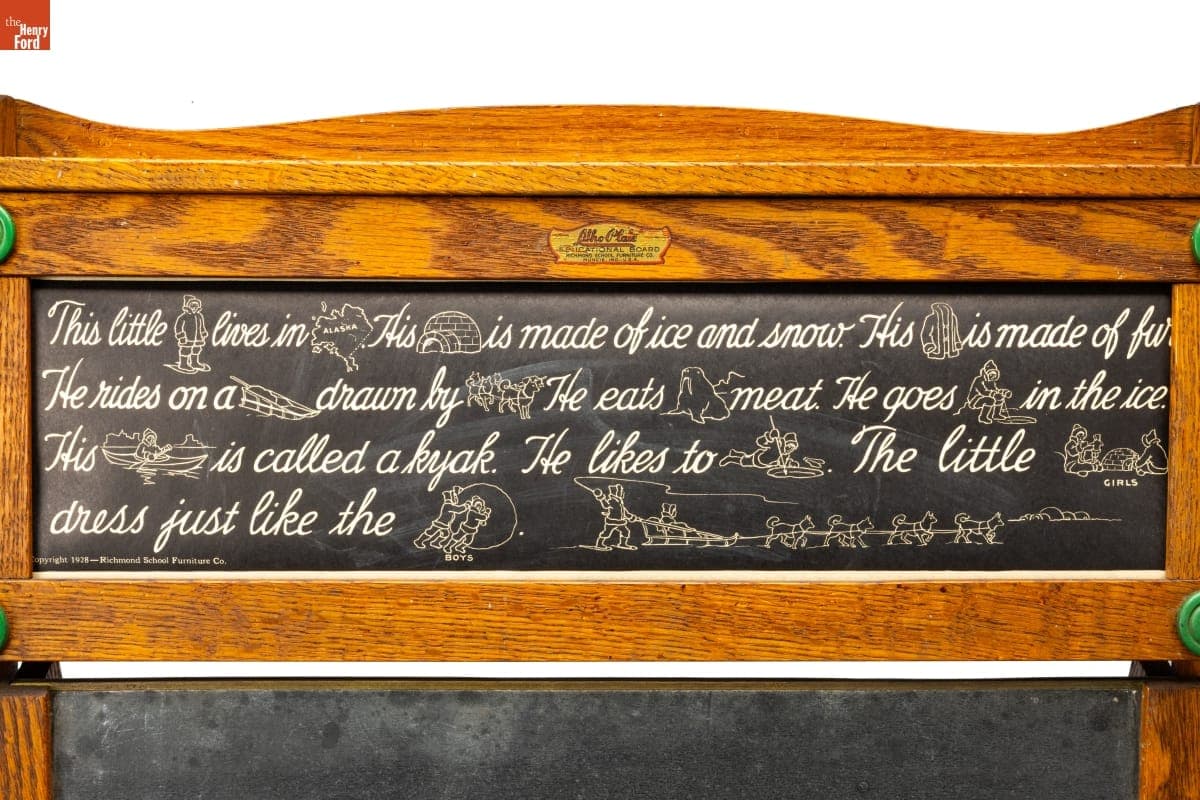 the
Henry
Ford
Litho Plate
EDUCATIONAL BOARD
RICHMOND SCHOOL FURNITURE CO.
MUNCIE, IND. U.S.A.
This little lives in ALASKA His is made of ice and snow. His is made of fur
He rides on a drawn by He eats meat. He goes in the ice.
His is called a kyak. He likes to . The little
GIRLS
dress just like the .
BOYS
opyright 1928—Richmond School Furniture Co.